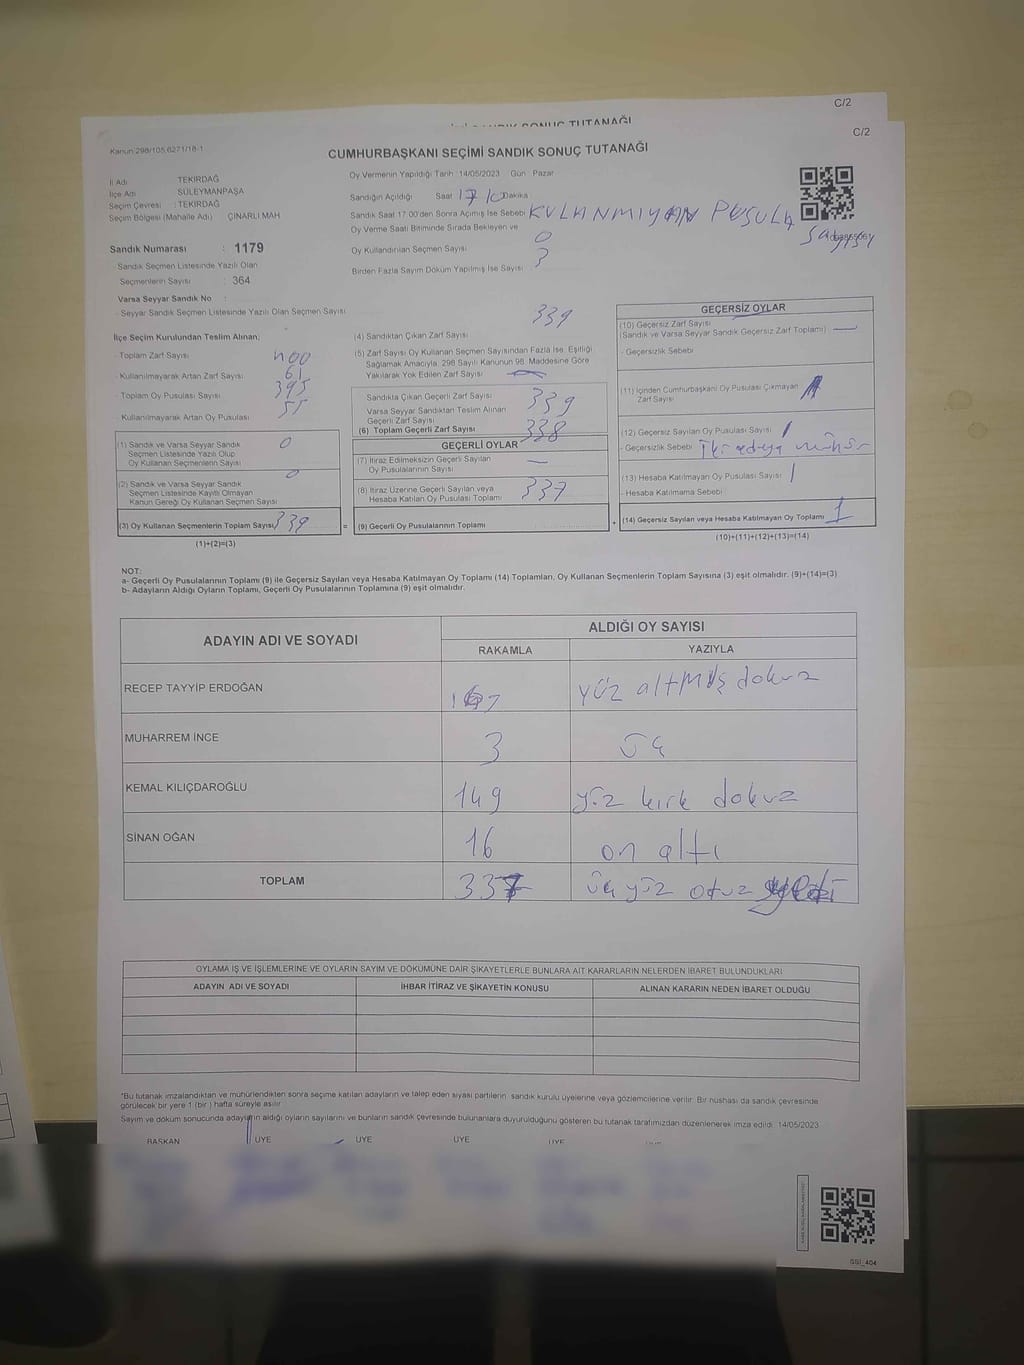 C/2
SONUÇ TUTANAĞI
C/2
Kanun 298/105,6271/18-1
CUMHURBAŞKANI SEÇİMİ SANDIK SONUÇ TUTANAĞI
İl Adı TEKİRDAĞ
İlçe Adı SÜLEYMANPAŞA
Seçim Çevresi : TEKİRDAĞ
Seçim Bölgesi (Mahalle Adı) ÇINARLI MAH
Sandık Numarası : 1179
Sandık Seçmen Listesinde Yazılı Olan
Seçmenlerin Sayısı : 364
Varsa Seyyar Sandık No :
- Seyyar Sandık Seçmen Listesinde Yazılı Olan Seçmen Sayısı
Oy Vermenin Yapıldığı Tarih 14/05/2023 Gün Pazar
Sandığın Açıldığı Saat 17 10 Dakika
Sandık Saat 17.00'den Sonra Açımış İse Sebebi KULANMIYAN PUSULA
Oy Verme Saati Bitiminde Sırada Bekleyen ve
Oy Kullandırılan Seçmen Sayısı 0
Birden Fazla Sayım Döküm Yapılmış İse Sayısı
İlçe Seçim Kurulundan Teslim Alınan;
- Toplam Zarf Sayısı 400
- Kullanılmayarak Artan Zarf Sayısı 61
- Toplam Oy Pusulası Sayısı 395
- Kullanılmayarak Artan Oy Pusulası 55
(1) Sandık ve Varsa Seyyar Sandık 0
Seçmen Listesinde Yazılı Olup
Oy Kullanan Seçmenlerin Sayısı
(2) Sandık ve Varsa Seyyar Sandık 0
Seçmen Listesinde Kayıtlı Olmayan
Kanun Gereği Oy Kullanan Seçmen Sayısı
(3) Oy Kullanan Seçmenlerin Toplam Sayısı 339
(1)+(2)=(3)
(4) Sandıktan Çıkan Zarf Sayısı 339
(5) Zarf Sayısı Oy Kullanan Seçmen Sayısından Fazla İse, Eşitliği
Sağlamak Amacıyla, 298 Sayılı Kanunun 98. Maddesine Göre
Yakılarak Yok Edilen Zarf Sayısı —
Sandıkta Çıkan Geçerli Zarf Sayısı 339
Varsa Seyyar Sandıktan Teslim Alınan
Geçerli Zarf Sayısı
(6) Toplam Geçerli Zarf Sayısı 338
GEÇERLİ OYLAR
(7) İtiraz Edilmeksizin Geçerli Sayılan —
Oy Pusulalarının Sayısı
(8) İtiraz Üzerine Geçerli Sayılan veya 337
Hesaba Katılan Oy Pusulası Toplamı
=
(9) Geçerli Oy Pusulalarının Toplamı
+
GEÇERSİZ OYLAR
(10) Geçersiz Zarf Sayısı
(Sandık ve Varsa Seyyar Sandık Geçersiz Zarf Toplamı) —
- Geçersizlik Sebebi
(11) İçinden Cumhurbaşkanı Oy Pusulası Çıkmayan
Zarf Sayısı
(12) Geçersiz Sayılan Oy Pusulası Sayısı 1
- Geçersizlik Sebebi iki adaya mühür
(13) Hesaba Katılmayan Oy Pusulası Sayısı 1
- Hesaba Katılmama Sebebi
(14) Geçersiz Sayılan veya Hesaba Katılmayan Oy Toplamı 1
(10)+(11)+(12)+(13)=(14)
NOT:
a- Geçerli Oy Pusulalarının Toplamı (9) ile Geçersiz Sayılan veya Hesaba Katılmayan Oy Toplamı (14) Toplamları, Oy Kullanan Seçmenlerin Toplam Sayısına (3) eşit olmalıdır. (9)+(14)=(3)
b- Adayların Aldığı Oyların Toplamı, Geçerli Oy Pusulalarının Toplamına (9) eşit olmalıdır.
ADAYIN ADI VE SOYADI ALDIĞI OY SAYISI
RAKAMLA YAZIYLA
RECEP TAYYİP ERDOĞAN yüz altmış dokuz
MUHARREM İNCE 3 üç
KEMAL KILIÇDAROĞLU 149 yüz kırk dokuz
SİNAN OĞAN 16 on altı
TOPLAM 337 üç yüz otuz yedi
OYLAMA İŞ VE İŞLEMLERİNE VE OYLARIN SAYIM VE DÖKÜMÜNE DAİR ŞİKAYETLERLE BUNLARA AİT KARARLARIN NELERDEN İBARET BULUNDUKLARI
ADAYIN ADI VE SOYADI İHBAR İTİRAZ VE ŞİKAYETİN KONUSU ALINAN KARARIN NEDEN İBARET OLDUĞU
*Bu tutanak imzalandıktan ve mühürlendikten sonra seçime katılan adayların ve talep eden siyasi partilerin sandık kurulu üyelerine veya gözlemcilerine verilir. Bir nüshası da sandık çevresinde
görülecek bir yere 1 (bir) hafta süreyle asılır
Sayım ve döküm sonucunda adayların aldığı oyların sayılarını ve bunların sandık çevresinde bulunanlara duyurulduğunu gösteren bu tutanak tarafımızdan düzenlenerek imza edildi. 14/05/2023
BAŞKAN ÜYE ÜYE ÜYE ÜYE
SSI_404